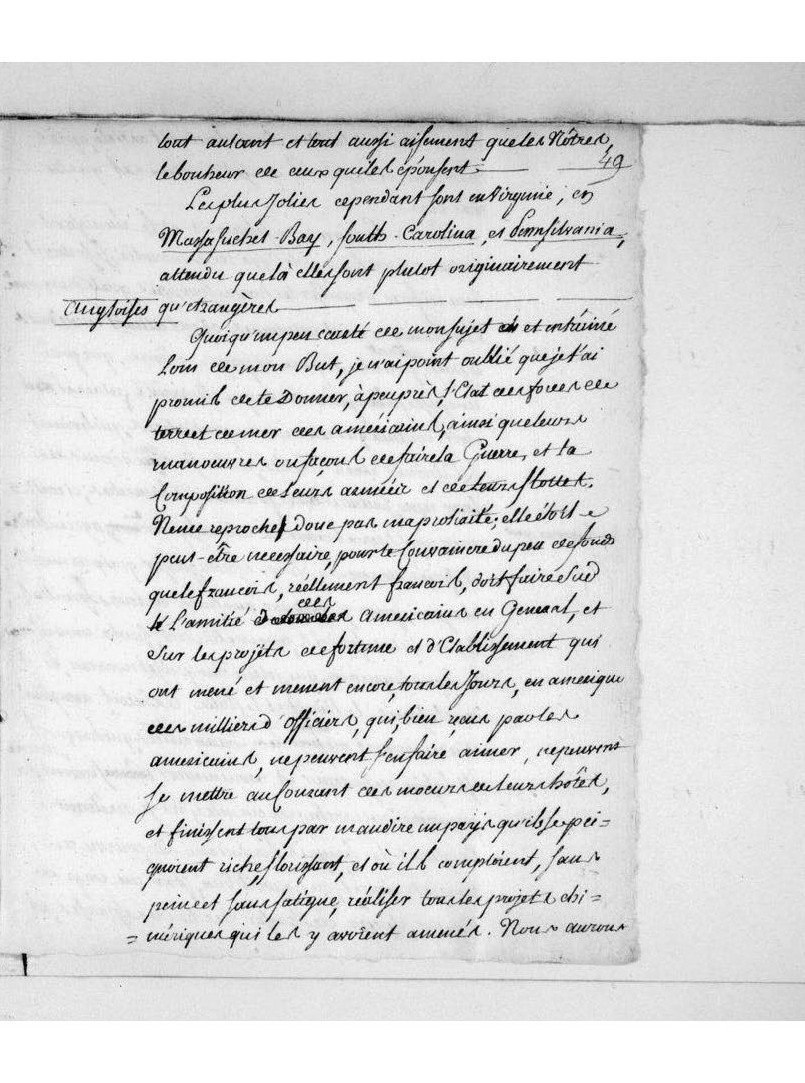 tout autant et tout aussi aisement que les Nôtres,
49
le bonheur de ceux qui les épousent
Les plus Jolies cependant sont en Virginie, en
Massasuchet-Bay, South-Carolina, et Pennsilvania,
attendu que là elles sont plutot originairement
angloises qu'etrangères
Quoiqu'un peu écarté de mon sujet et entrainé
Loin de mon But, je n'ai point oublié que je t'ai
promis de te Donner, à peu près, l'Etat des forces de
terre et de mer des américains, ainsi que leurs
manoeuvres ou façons de faire la Guerre, et la
Composition de Leurs armées et de Leurs flottes.
Ne me reproche donc pas ma prolixité; elle étoit
peut-être necessaire, pour te Convaincre du peu de fonds
que le francois, réellement francois, doit faire Sur
des
L'amitié americains en General, et
Sur les projets de fortune et d'Etablissement qui
ont mené et menent encore, tous les Jours, en amerique
des milliers d'officiers, qui, bien reçus par les
americains, ne peuvent s'en faire aimer, ne peuvent
se mettre au Courant des moeurs de leurs hôtes,
et finissent tous par maudire un pays qu'ils se pei=
gnoient riche, florissant, et où ils comptoient, sans
peine et sans fatigue, réaliser tous les projets chi=
=mériques qui les y avoient amenés. Nous aurons